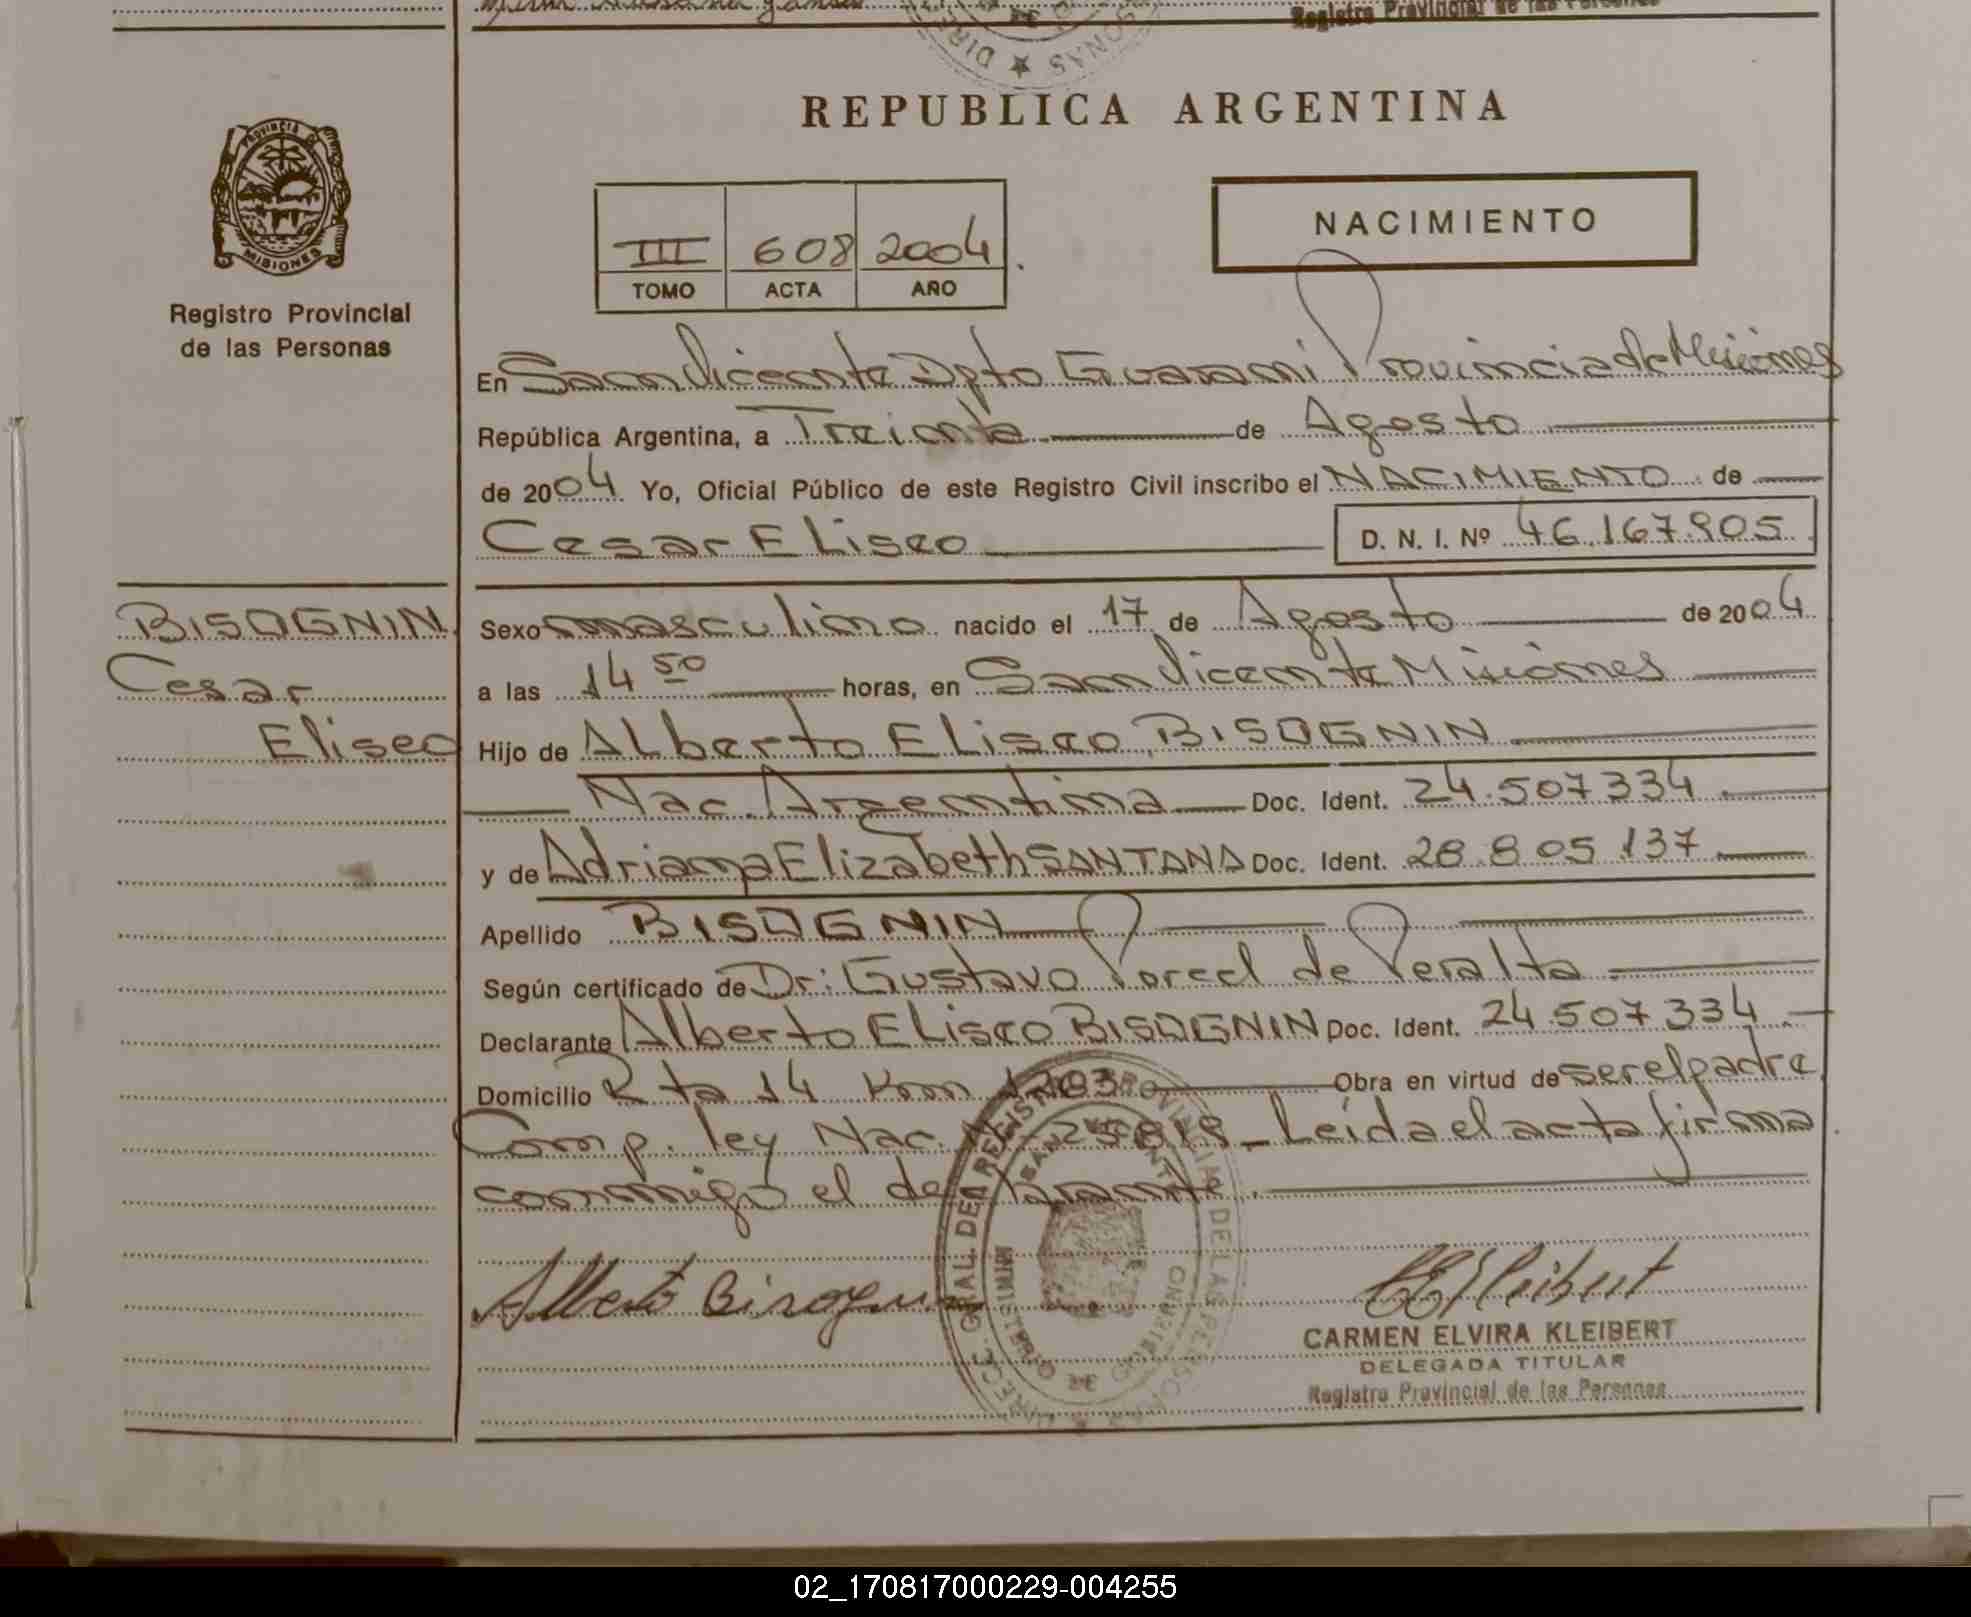 Registro Provincial de las Personas
DIREC
ONAS
REPUBLICA ARGENTINA
PROVINCIA DE
MISIONES
Registro Provincial
de las Personas
NACIMIENTO
III 608 2004
TOMO ACTA AÑO
En San Vicente Dpto Guarani Provincia de Misiones
República Argentina, a Treinta de Agosto
de 2004 Yo, Oficial Público de este Registro Civil inscribo el NACIMIENTO de
Cesar Eliseo D. N. I. Nº 46.167.905
BISOGNIN
Cesar
Eliseo
Sexo masculino nacido el 17 de Agosto de 2004
a las 14 50 horas, en San Vicente Misiones
Hijo de Alberto Eliseo BISOGNIN
Nac. Argentina Doc. Ident. 24.507334
y de Adriana Elizabeth SANTANA Doc. Ident. 28.805.137
Apellido BISOGNIN
Según certificado de Dr: Gustavo Porcel de Peralta
Declarante Alberto Eliseo BISOGNIN Doc. Ident. 24.507334
Domicilio Rta 14 Km Obra en virtud de ser el padre
Comp. ley Nac. Leída el acta firma
conmigo el
Alberto Bisognin
CARMEN ELVIRA KLEIBERT
DELEGADA TITULAR
Registro Provincial de las Personas
02_170817000229-004255